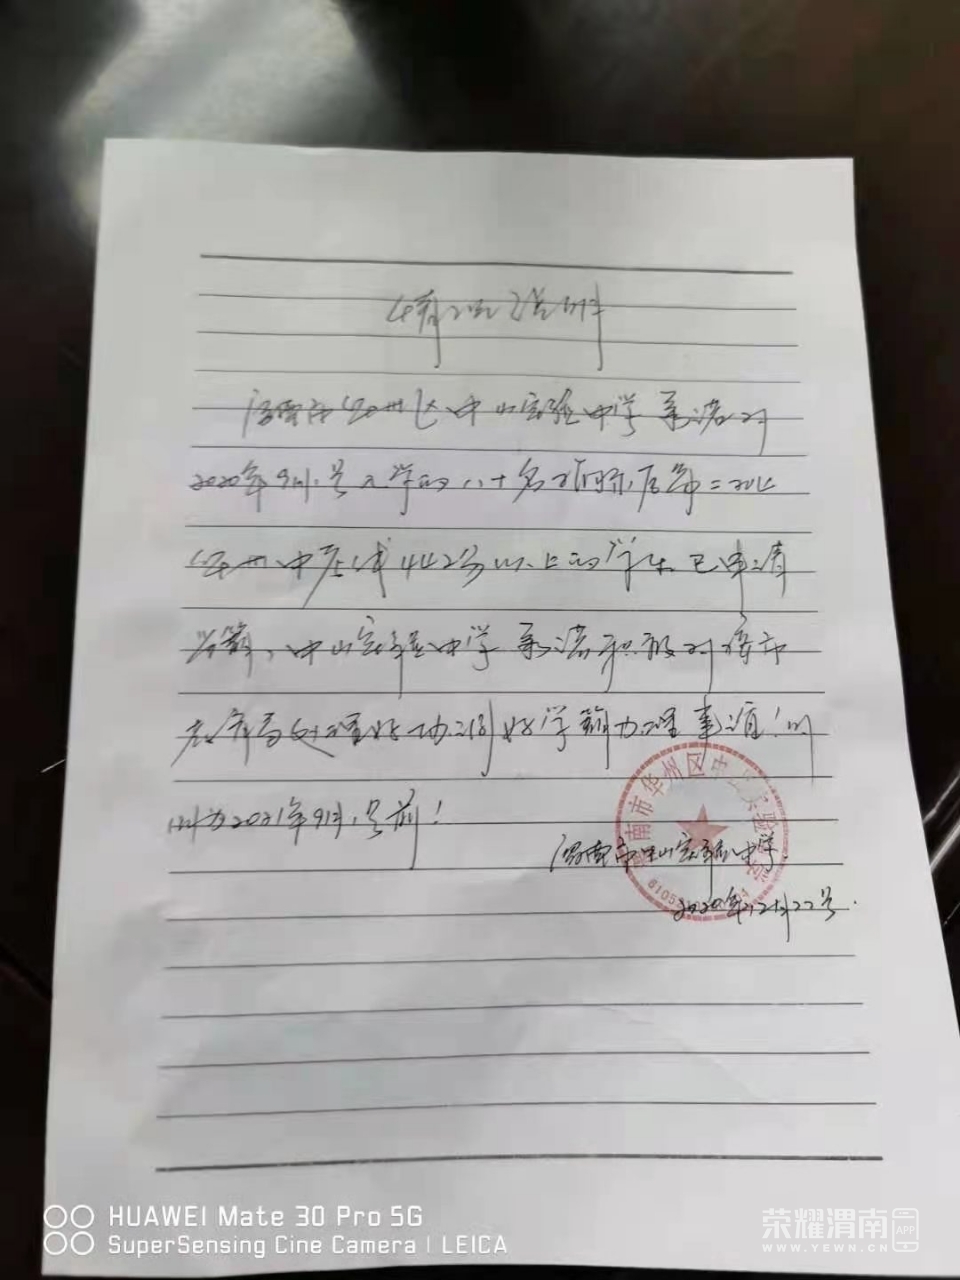 情况说明
渭南市华州区中山实验中学承诺对
2020年9月1号入学的八十名
华州中考线442分以上的学生已申请
学籍,中山实验中学承诺积极对接市
教育局处理好协调好学籍办理事项!时
间为2021年9月1号前!
渭南市中山实验中学
2020年12月22号.
渭南市华州区中山实验中学
HUAWEI Mate 30 Pro 5G
SuperSensing Cine Camera | LEICA
荣耀渭南 APP
WWW.YEWN.CN